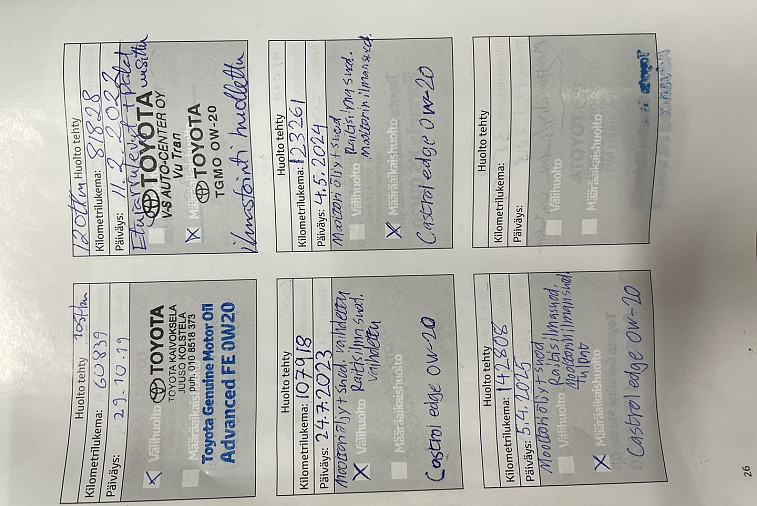 Huolto tehty 105tkm
Kilometrilukema: 60839
Päiväys: 29.10.19
X Välihuolto
TOYOTA
TOYOTA KAIVOKSELA
JUUSO KOLSTELA
puh. 010 8518 373
Määräaikaishuolto
Toyota Genuine Motor Oil
Advanced FE 0W20
120tkm Huolto tehty
Kilometrilukema: 81828
Päiväys: 11.2.2022
Etujarrulevyt + palat uusittu
TOYOTA
V-S AUTO-CENTER OY
Vu Tran
X
TOYOTA
TGMO OW-20
Ilmastointi huollettu
Huolto tehty
Kilometrilukema: 107918
Päiväys: 24.7.2023
Moottoriöljy + suod. vaihdettu
Raitisilmasuod.
vaihdettu
X Välihuolto
Määräaikaishuolto
Castrol edge 0w-20
Huolto tehty
Kilometrilukema: 123261
Päiväys: 4.5.2024
Moottoriöljy + suod
Raitisilmasuod.
Moottorin ilmansuod.
Välihuolto
X Määräaikaishuolto
Castrol edge 0w-20
Huolto tehty
Kilometrilukema: 142808
Päiväys: 5.4.2025
Moottoriöljy + suod
Raitisilmasuod.
Moottorin ilmansuod.
Tulpat
Välihuolto
X Määräaikaishuolto
Castrol edge 0w-20
Huolto tehty
Kilometrilukema:
Päiväys:
Välihuolto
Määräaikaishuolto
26